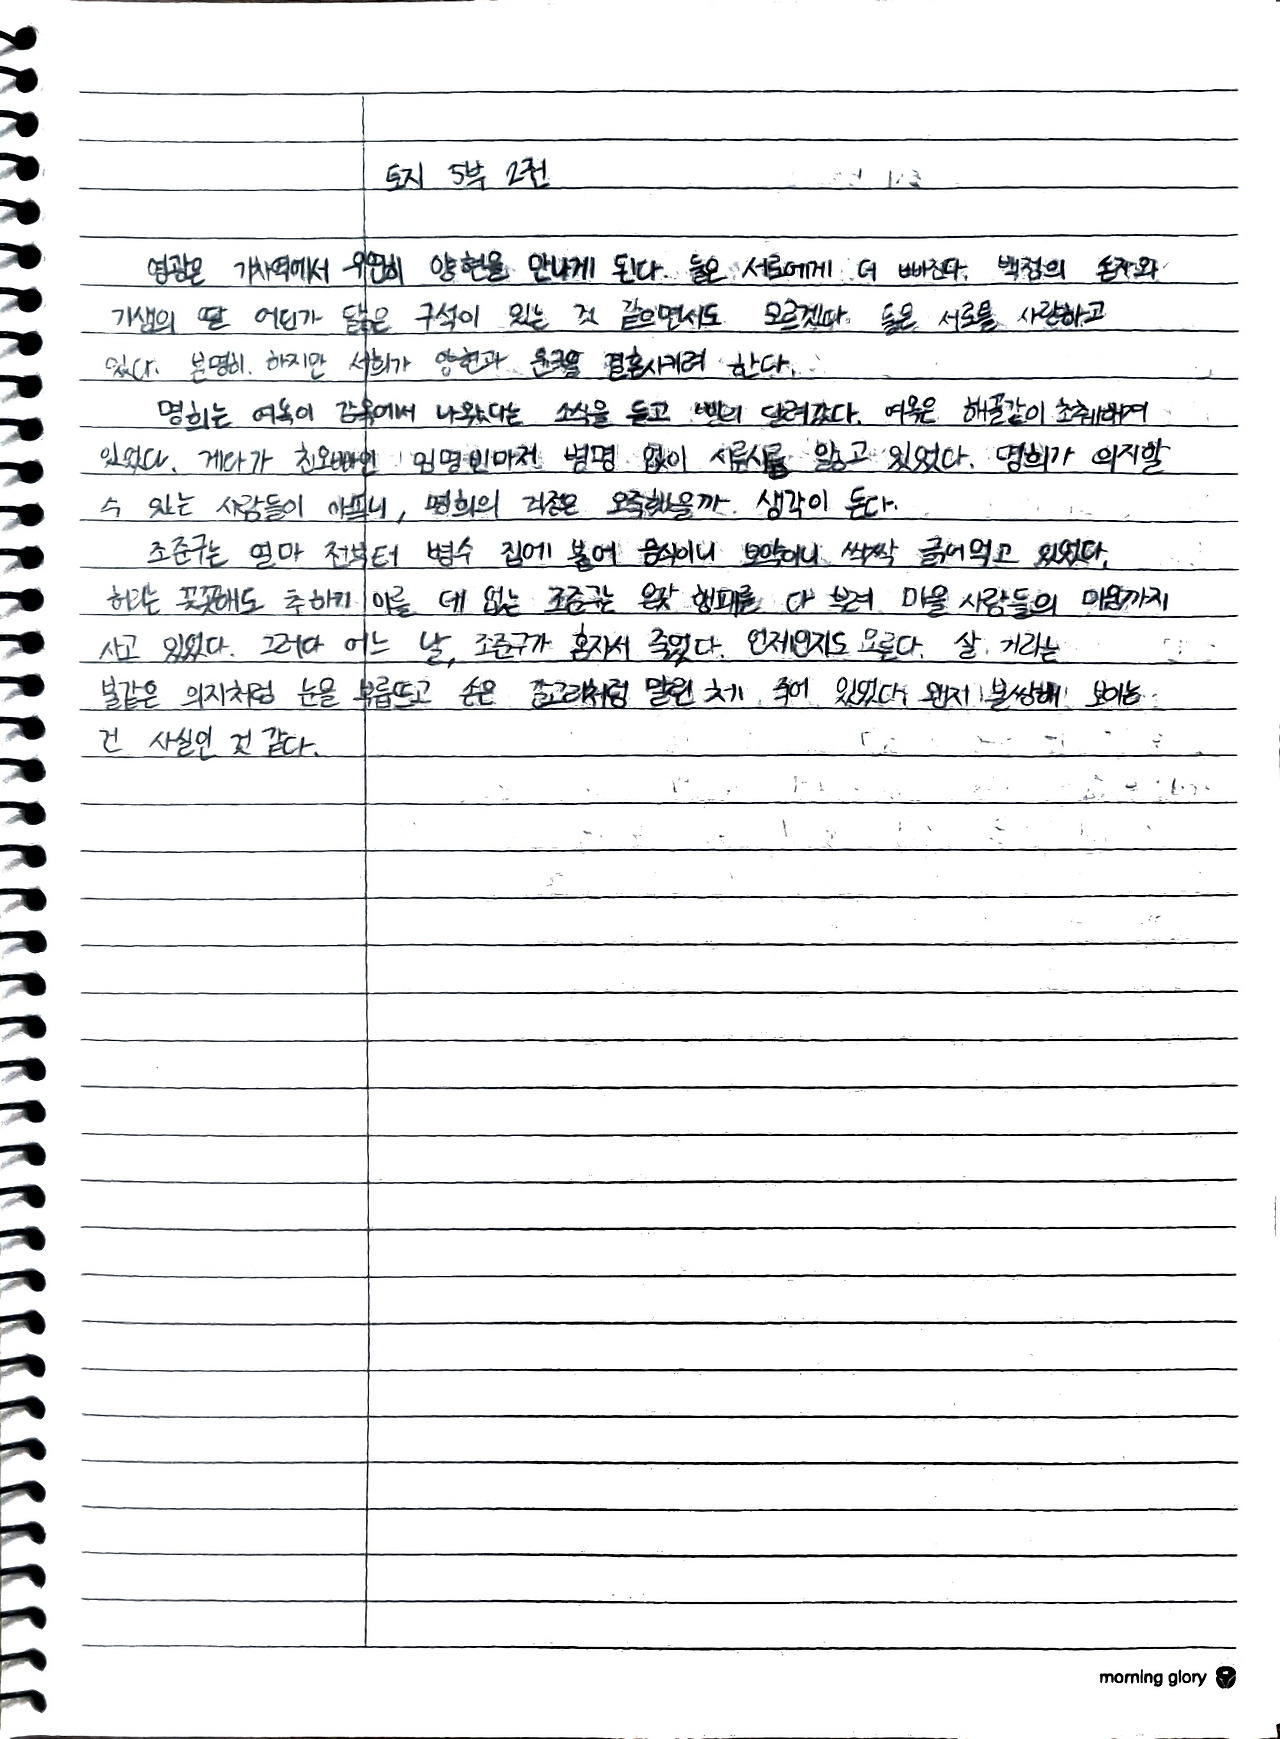 토지 5부 2권
영광은 기차역에서 우연히 양현을 만나게 된다. 둘은 서로에게 더 빠진다. 백정의 손자와
기생의 딸 어딘가 닮은 구석이 있는 것 같으면서도 모르겠다. 둘은 서로를 사랑하고
있다. 분명히. 하지만 서희가 양현과 윤국을 결혼시키려 한다.
명희는 여옥이 감옥에서 나왔다는 소식을 듣고 빨리 달려갔다. 여옥은 해골같이 초췌해져
있었다. 게다가 친오빠인 임명빈마저 병명 없이 시름시름 앓고 있었다. 명희가 의지할
수 있는 사람들이 아프니, 명희의 걱정은 오죽했을까 생각이 든다.
조준구는 얼마 전부터 병수 집에 붙어 음식이니 보약이니 싹싹 긁어먹고 있었다.
꼿꼿해도 추하기 이를 데 없는 조준구는 온갖 행패를 다 부려 마을 사람들의 미움까지
사고 있었다. 그러다 어느 날, 조준구가 혼자서 죽었다. 언제인지도 모른다. 살 거라는
불같은 의지처럼 눈을 부릅뜨고 손은 갈고리처럼 말린 채 죽어 있었다. 왠지 불쌍해 보이는
건 사실인 것 같다.
morning glory